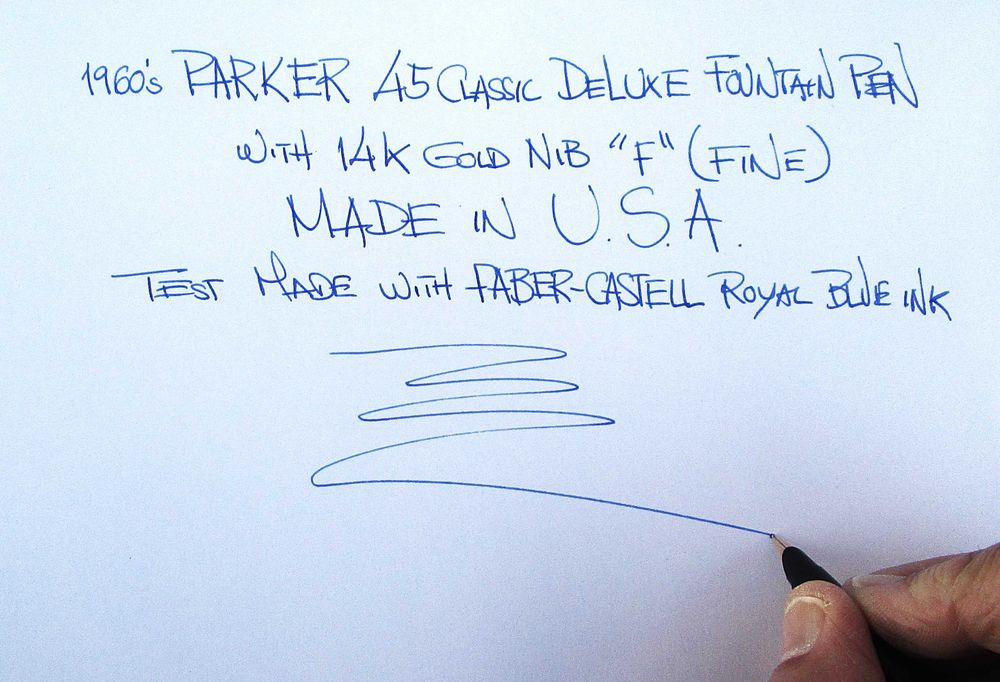 1960's PARKER 45 CLASSIC DELUXE FOUNTAIN PEN
WITH 14K GOLD NIB "F" (FINE)
MADE IN U.S.A.
TEST MADE WITH FABER-CASTELL ROYAL BLUE INK